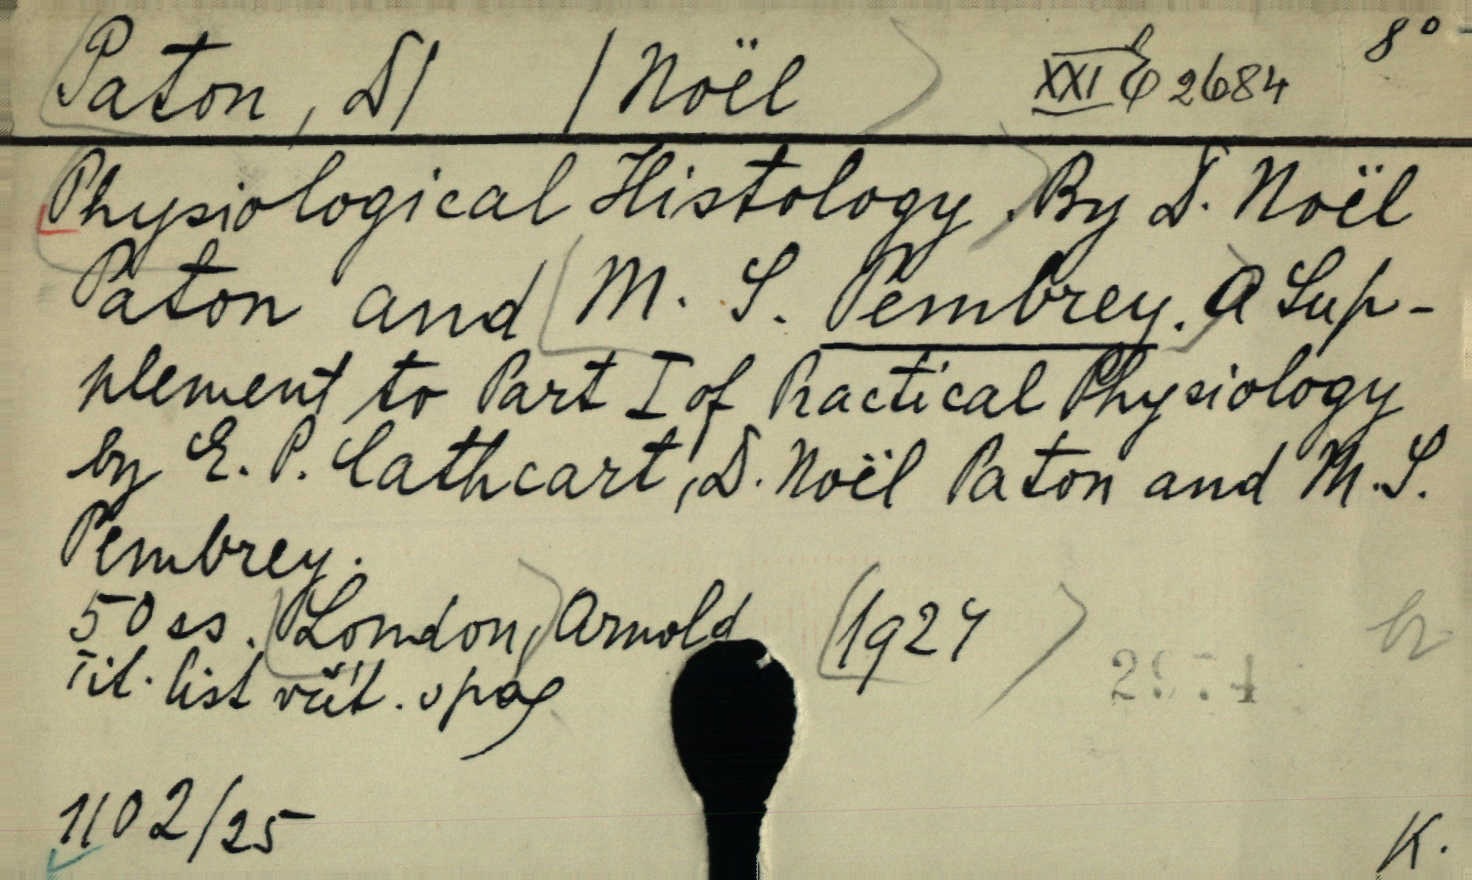 Paton, D/ /Noël XXI E 2684 8°
Physiological Histology. By D. Noël
Paton and M. S. Pembrey. A Sup-
plement to Part I of Practical Physiology
by E. P. Cathcart, D. Noël Paton and M. S.
Pembrey.
50 ss. London, Arnold 1924
Tit. list včít. v pag
1102/25
K.